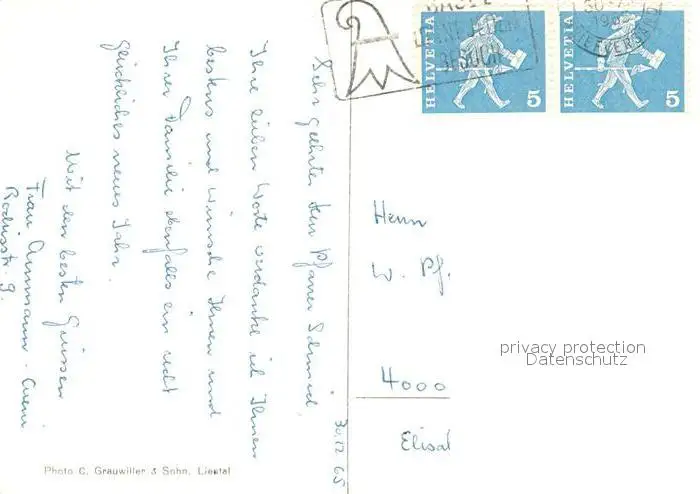 30.12.65
Sehr geehrter Herr Pfarrer Schmid,
Ihre lieben Worte verdanke ich Ihnen
bestens und wünsche Ihnen und
Ihrer Familie ebenfalls ein recht
glückliches neues Jahr.
Mit den besten Grüssen
Frau Ammann-
9.
Photo C. Grauwiller & Sohn, Liestal
BESUCH
HELVETIA 5
HELVETIA 5
Herrn
W. Pf.
4000
privacy protection
Datenschutz